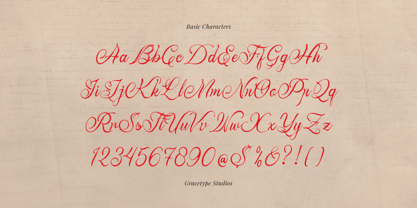 Basic Characters
AaBbCcDdEeFfGgHh
IiJjKkLlMmNnOoPpQq
RrSsTtUuVvWwXxYyZz
1234567890@$%&?!()
Gracetype Studios